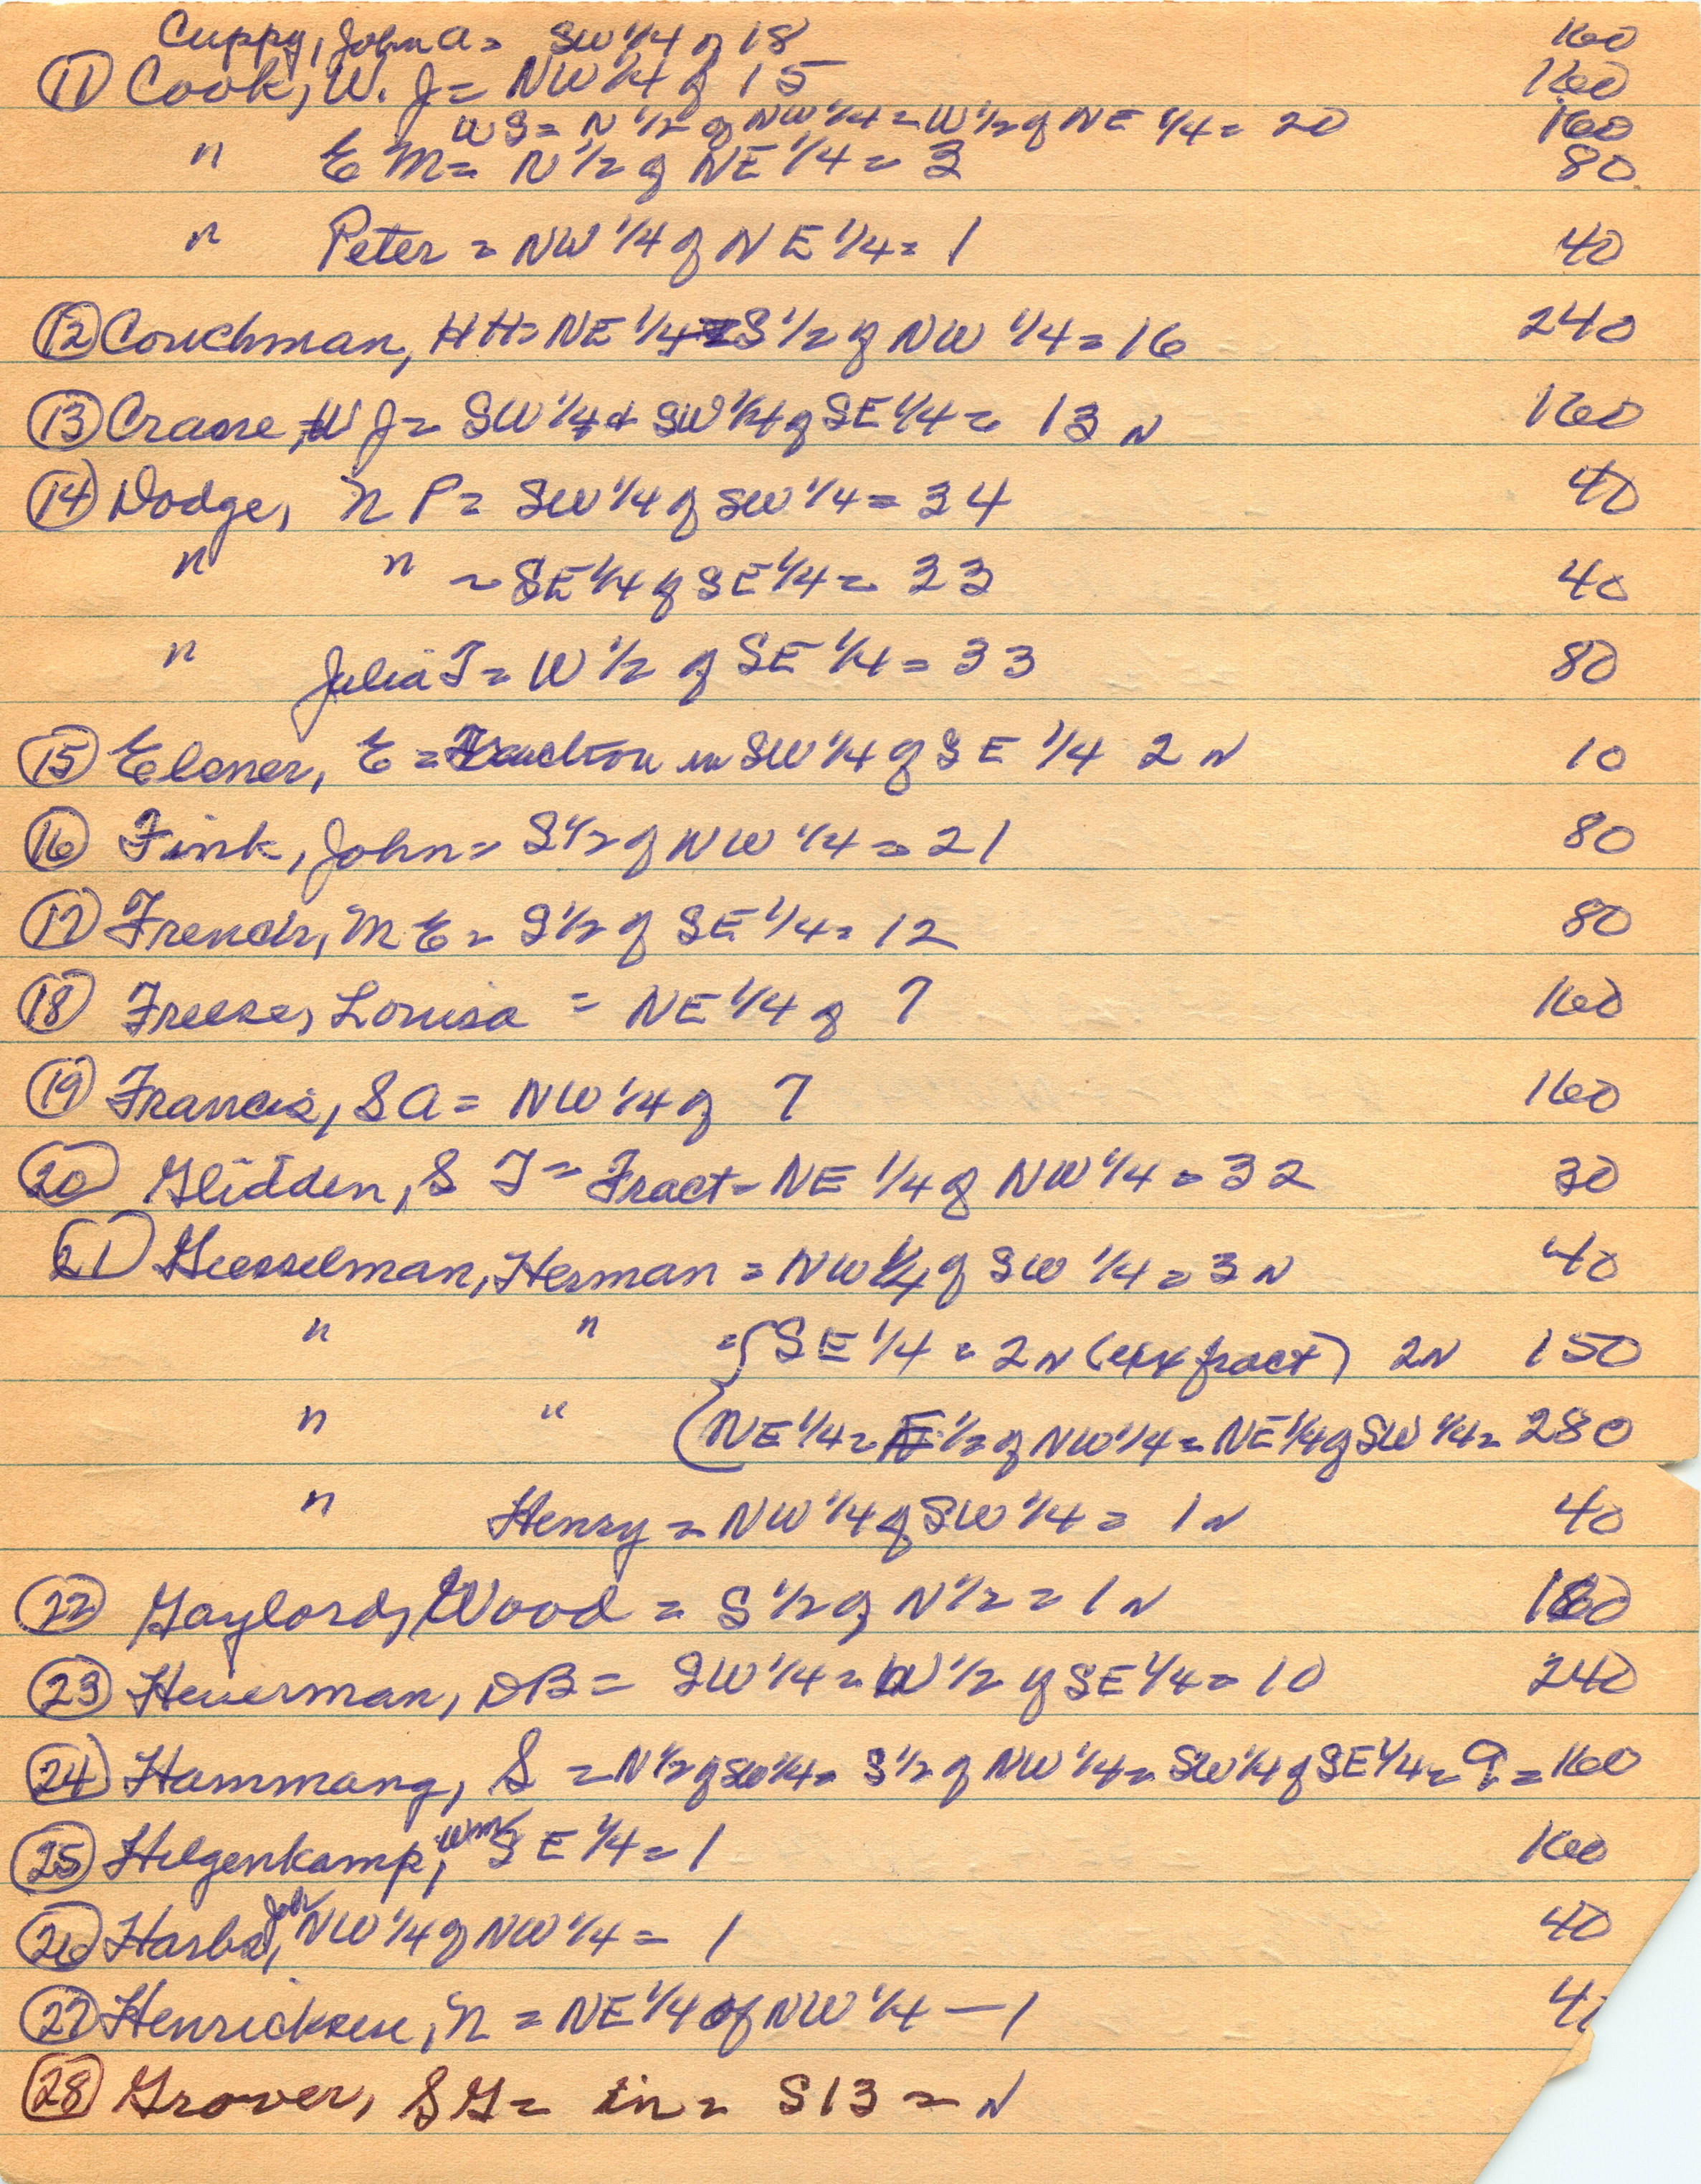 Cuppy, John A = SW 1/4 of 18 160
(11) Cook, W. J = NW 1/4 of 15 160
WS = N 1/2 of NW 1/4 = W 1/2 of NE 1/4 = 20 160
" E M = N 1/2 of NE 1/4 = 3 80
" Peter = NW 1/4 of NE 1/4 = 1 40
(12) Couchman, HH = NE 1/4 = S 1/2 of NW 1/4 = 16 240
(13) Crane, W J = SW 1/4 + SW 1/4 of SE 1/4 = 13 N 160
(14) Dodge, N P = SW 1/4 of SW 1/4 = 34 40
" " = SE 1/4 of SE 1/4 = 33 40
" Julia T = W 1/2 of SE 1/4 = 33 80
(15) Elsner, E = Fraction in SW 1/4 of SE 1/4 2 N 10
(16) Fink, John = S 1/2 of NW 1/4 = 21 80
(17) French, M E = S 1/2 of SE 1/4 = 12 80
(18) Freese, Louisa = NE 1/4 of 7 160
(19) Francis, S A = NW 1/4 of 7 160
(20) Glidden, S T = Fract - NE 1/4 of NW 1/4 = 32 30
(21) Giesselman, Herman = NW 1/4 of SW 1/4 = 3 N 40
" " = { SE 1/4 = 2 N (ex fract) 2N 150
" " { NE 1/4 = E 1/2 of NW 1/4 = NE 1/4 of SW 1/4 = 280
" Henry = NW 1/4 of SW 1/4 = 1 N 40
(22) Gaylord, Wood = S 1/2 of N 1/2 = 1 N 160
(23) Heuerman, DB = SW 1/4 = W 1/2 of SE 1/4 = 10 240
(24) Hammang, S = N 1/2 of SW 1/4 = S 1/2 of NW 1/4 = SW 1/4 of SE 1/4 = 9 = 160
(25) Hilgenkamp, Wm SE 1/4 = 1 160
(26) Harbs, Joh NW 1/4 of NW 1/4 = 1 40
(27) Henricksen, N = NE 1/4 of NW 1/4 — 1
(28) Grover, S G = in = S13 = N